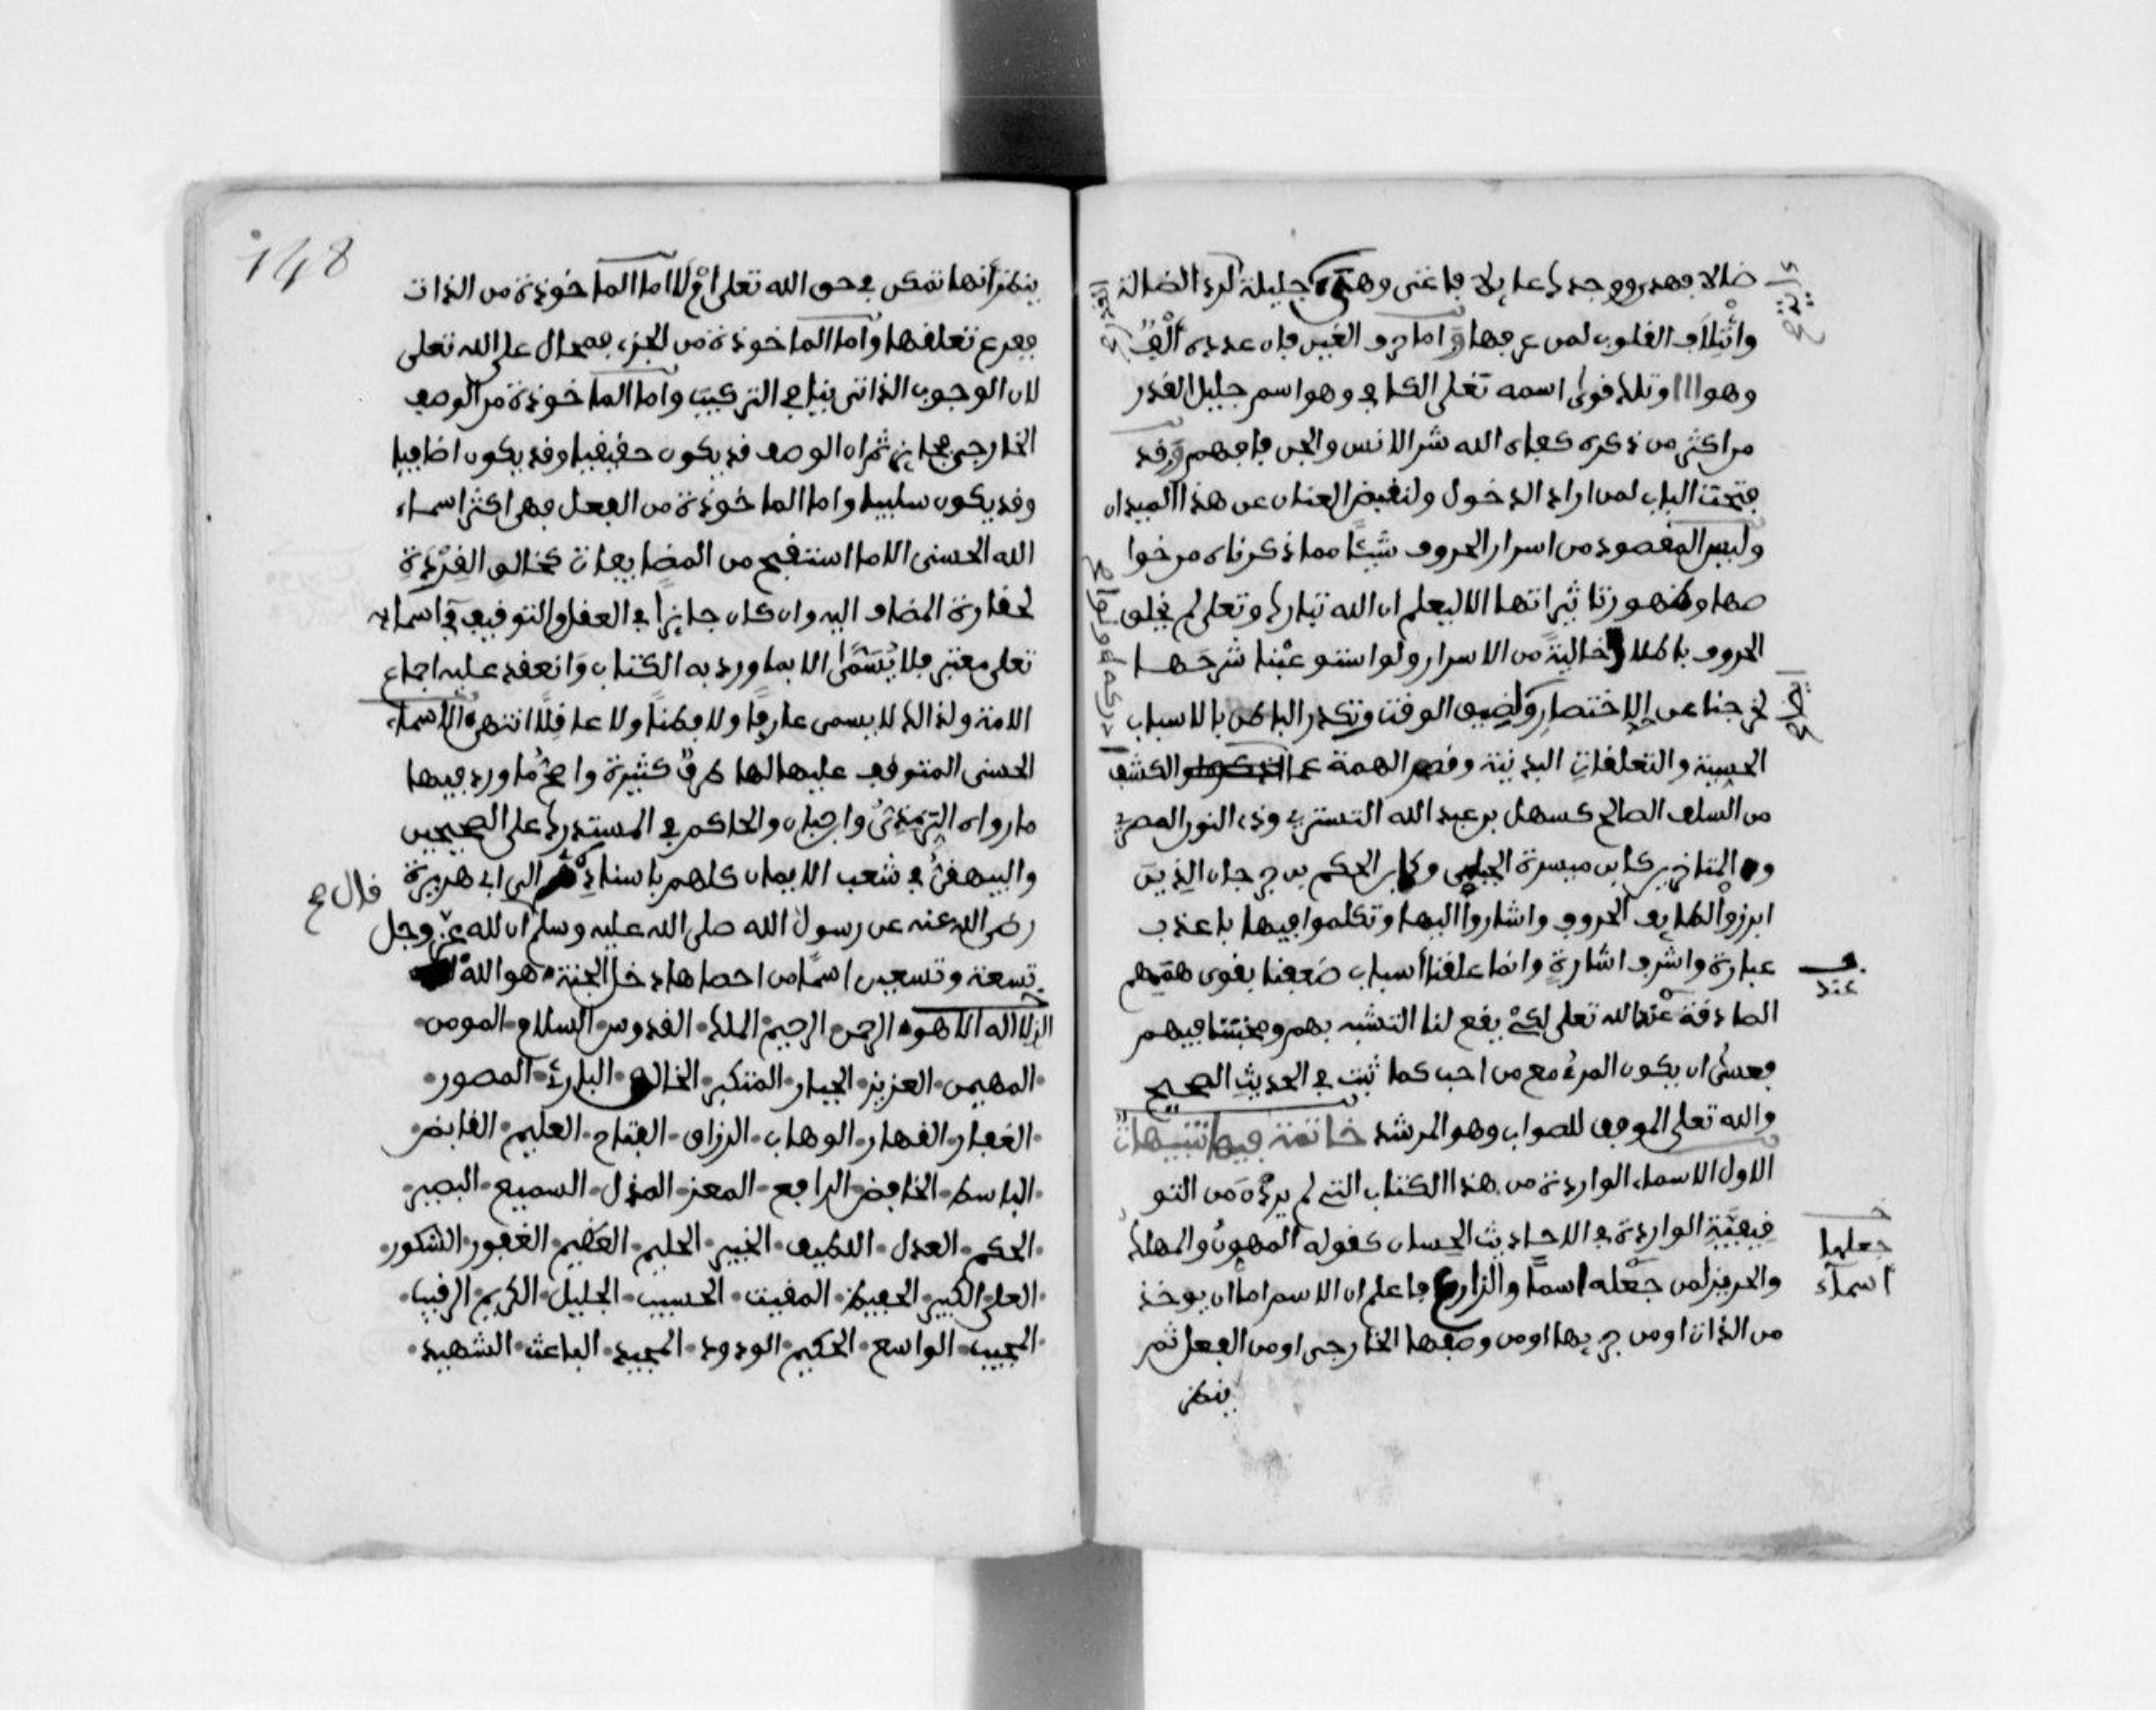 ضالا فهدى ووجدك عايلا فاغنى وهذه جليلة لرد الضالة
وائتلاف القلوب لمن عرفها واما حرف الغين فان عدده ألف
وهو ااا وتلك قوى اسمه تعلى الكافي وهو اسم جليل القدر
من اكثر من ذكره كفاه الله شر الانس والجن فافهم وقد
فتحت الباب لمن اراد الدخول ولنقبض العنان عن هذا الميدان
وليس المقصود من اسرار الحروف شيئا مما ذكرناه من خوا
صها وظهور تاثيراتها الا ليعلم ان الله تبارك وتعلى لم يخلق
الحروف باطلا خالية من الاسرار ولو استوعبنا شرحها
لخرجنا عن الاختصار ولضيق الوقت وتكدر الباطن بالاسباب
الحسية والتعلقات البدنية وقصر الهمة عما والكشف
من السلف الصالح كسهل بن عبد الله التستري وذي النور المصري
و المتاخرين كابن ميسرة الجبلي وكابي الحكم بن برجان الذين
ابرزوا لطايف الحروف واشاروا اليها وتكلموا فيها باعذب
عبارة واشرف اشارة وانما علقنا أسباب ضعفنا بقوى هممهم
الصادقة عند الله تعلى لكي يقع لنا التشبه بهم ومحبتنا فيهم
فعسى ان يكون المرء مع من احب كما ثبت في الحديث الصحيح
والله تعلى الموفق للصواب وهو المرشد خاتمة فيها تنبيهات
الاول الاسماء الواردة من هذا الكتاب التي لم يرده من التو
قيفية الواردة في الاحاديث الحسان كقوله المهون والمهلك
والحريز لمن جعله اسما والزارع فاعلم ان الاسم اما ان يوخذ
من الذات او من جزيها او من وصفها الخارجي او من الفعل ثم
ينظر
عند
جعلها
اسماء
148
ينظر أنها تمكن في حق الله تعلى ام لا اما الماخوذة من الذات
ففرع تعلقها واما الماخوذة من الجزء فمحال على الله تعلى
لان الوجوب الذاتي ينافي التركيب واما الماخوذة من الوصف
الخارجي فجايز ثم ان الوصف قد يكون حقيقيا وقد يكون اضافيا
وقد يكون سلبيا واما الماخوذة من الفعل فهي اكثر اسماء
الله الحسنى الا ما استقبح من المضايفات كخالق القردة
لحقارة المضاف اليه وان كان جايزا في العقل والتوقيف في اسمايه
تعلى معتبر فلا يسمى الا بما ورد به الكتاب وانعقد عليه اجماع
الامة ولذلك لا يسمى عارفا ولا فطنا ولا عاقلا انتهى الاسماء
الحسنى المتوقف عليها لها طرق كثيرة واصح ما ورد فيها
ما رواه الترمذي وابن حبان والحاكم في المستدرك على الصحيحين
والبيهقي في شعب الايمان كلهم باسنادهم الى ابي هريرة
قال صح
رضي الله عنه عن رسول الله صلى الله عليه وسلم ان لله عز وجل
تسعة وتسعين اسما من احصاها دخل الجنة هو الله
الذي لا اله الا هو الرحمن الرحيم الملك القدوس السلام المومن
المهيمن العزيز الجبار المتكبر الخالق البارئ المصور
الغفار القهار الوهاب الرزاق الفتاح العليم القابض
الباسط الخافض الرافع المعز المذل السميع البصير
الحكم العدل اللطيف الخبير الحليم العظيم الغفور الشكور
العلي الكبير الحفيظ المقيت الحسيب الجليل الكريم الرقيب
المجيب الواسع الحكيم الودود المجيد الباعث الشهيد